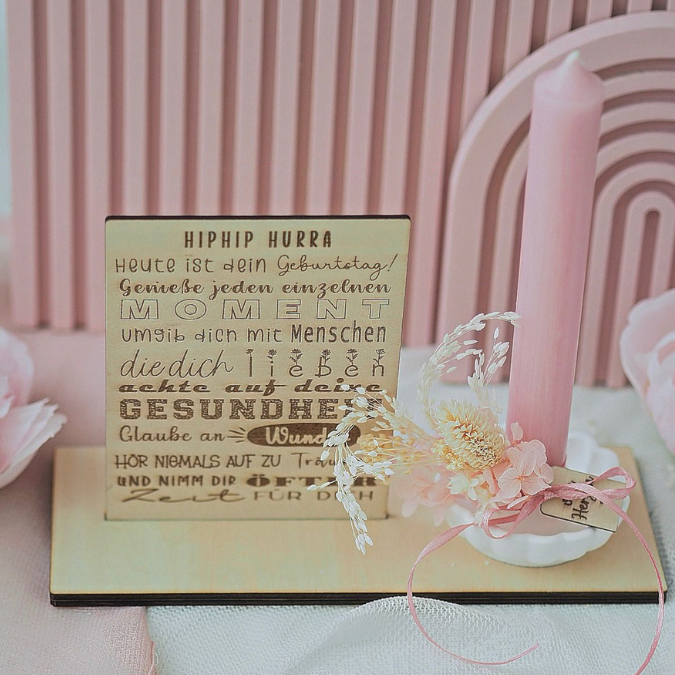 HIPHIP HURRA
Heute ist dein Geburtstag!
Genieße jeden einzelnen
MOMENT
umgib dich mit Menschen
die dich lieben
achte auf deine
GESUNDHEIT
Glaube an Wunder
HÖR NIEMALS AUF ZU
UND NIMM DIR ÖFTER
Zeit FÜR DICH
Herz